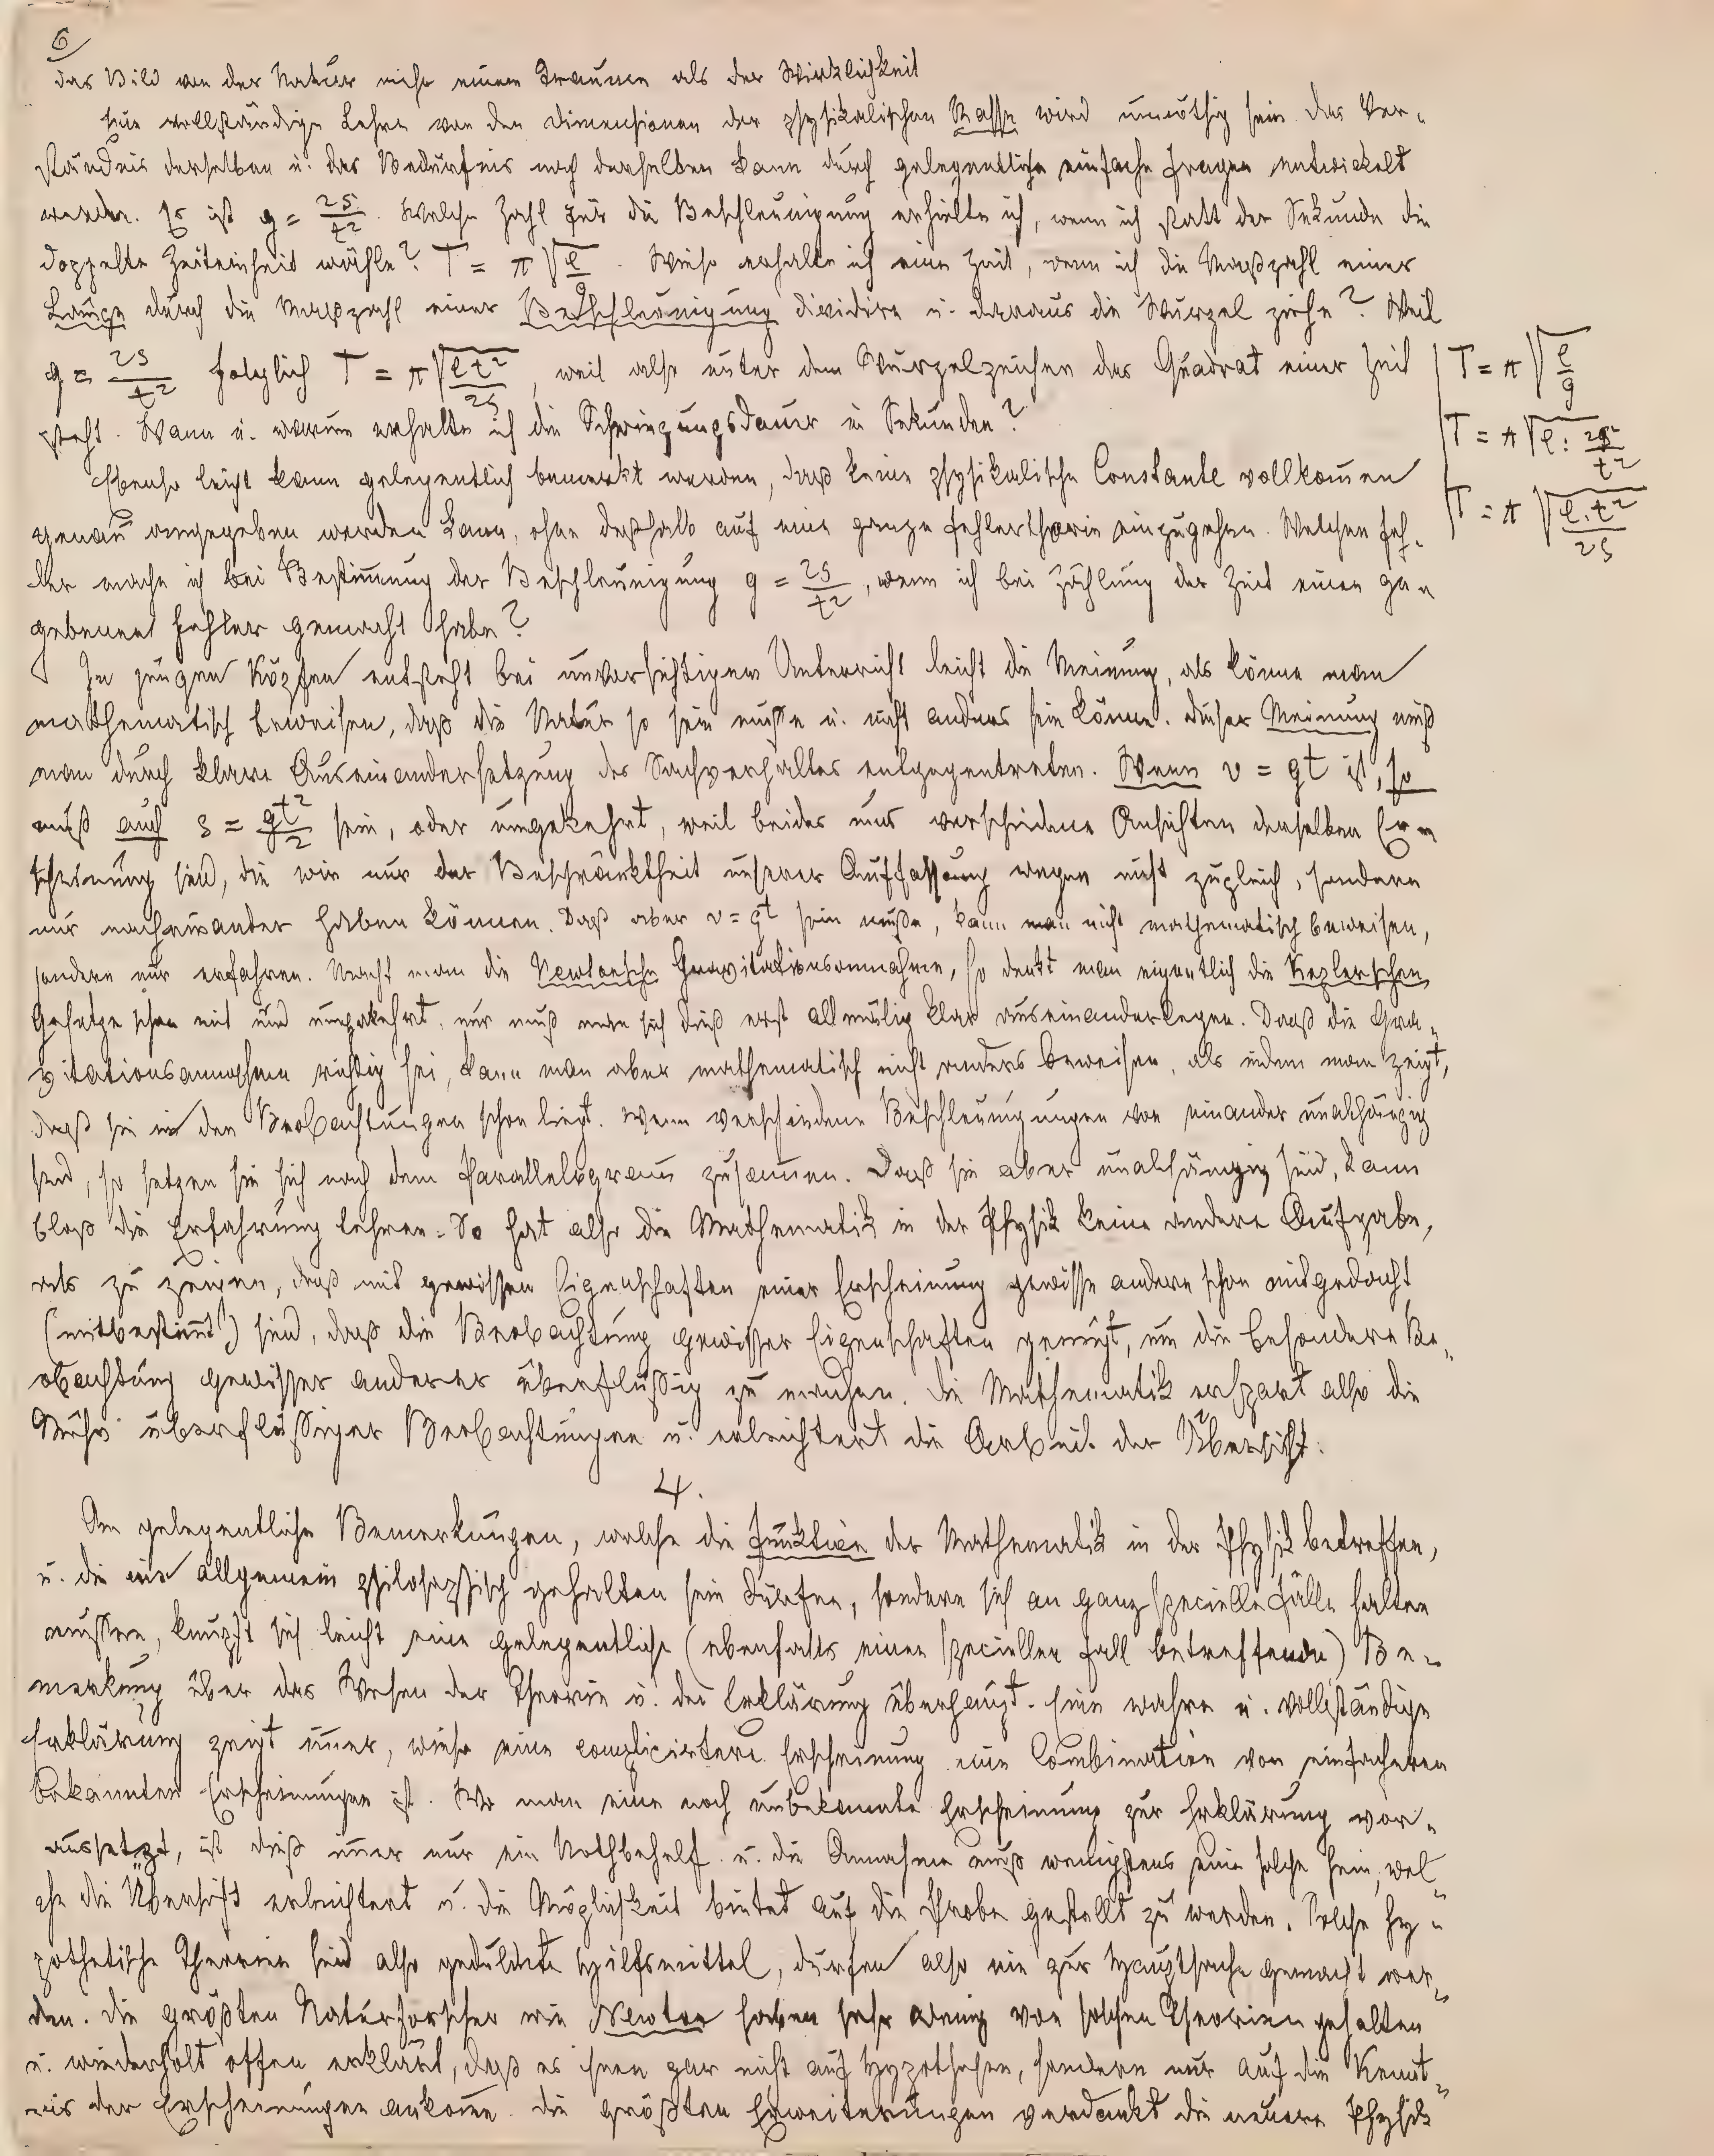 6
das Bild von der Natur mehr einem Traume als der Wirklichkeit
Eine vollständige Lehre von den Dimensionen der physikalischen Maße wird unnöthig sein. Das Ver-
ständnis derselben u. das Bedürfnis nach derselben kann durch gelegentliche einfache Fragen entwickelt
werden. Es ist g = 2s/t². Welche Zahl für die Beschleunigung erhielte ich, wenn ich statt der Sekunde die
doppelte Zeiteinheit wähle? T = π√(l/g). Wieso erhalte ich eine Zeit, wenn ich die Maßzahl einer
Länge durch die Maßzahl einer Beschleunigung dividire u. daraus die Wurzel ziehe? Weil
g = 2s/t² folglich T = π√(lt²/2s), weil also unter dem Wurzelzeichen das Quadrat einer Zeit
steht. Wann u. warum erhalte ich die Schwingungsdauer in Sekunden?
T = π√(l/g)
T = π√(l : 2s/t²)
T = π√(l.t²/2s)
Ebenso leicht kann gelegentlich bemerkt werden, daß keine physikalische Constante vollkom̄en
genau angegeben werden kann, ohne deßhalb auf eine ganze Fehlertheorie einzugehen. Welchen Feh-
ler mache ich bei Bestim̄ung der Beschleunigung g = 2s/t², wenn ich bei Zählung der Zeit einen ge-
gebenen Fehler gemacht habe?
In jungen Köpfen entsteht bei unvorsichtigem Unterricht leicht die Meinung, als könne man
mathematisch beweisen, daß die Natur so sein müße u. nicht anders sein könne. Dieser Meinung muß
man durch klare Auseinandersetzung des Sachverhaltes entgegentreten. Wenn v = gt ist, so
muß auch s = gt²/2 sein, oder umgekehrt, weil beides nur verschiedene Ansichten derselben Er-
scheinung sind, die wir nur der Beschränktheit unserer Auffassung wegen nicht zugleich, sondern
nur nacheinander haben können. Daß aber v = gt sein müße, kann man nicht mathematisch beweisen,
sondern nur erfahren. Macht man die Newtonsche Gravitationsannahme, so denkt man eigentlich die Keplerschen
Gesetze schon mit und umgekehrt, nur muß man sich dieß erst allmälig klar auseinanderlegen. Daß die Gra-
vitationsannahme richtig sei, kann man aber mathematisch nicht anders beweisen, als indem man zeigt,
daß sie in den Beobachtungen schon liegt. Wenn verschiedene Beschleunigungen von einander unabhängig
sind, so setzen sie sich nach dem Parallelogram̄ zusam̄en. Daß sie aber unabhängig sind, kann
bloß die Erfahrung lehren. So hat also die Mathematik in der Physik keine andere Aufgabe,
als zu zeigen, daß mit gewissen Eigenschaften einer Erscheinung gewisse andere schon mitgedacht
(mitbestim̄t) sind, daß die Beobachtung gewisser Eigenschaften genügt, um die besondere Be-
obachtung gewisser anderer überflüßig zu machen. Die Mathematik erspart also die
Mühe überflüßiger Beobachtungen u. erleichtert die Arbeit der Übersicht.
4.
An gelegentliche Bemerkungen, welche die Funktion der Mathematik in der Physik betreffen,
u. die nie allgemein philosophisch gehalten sein dürfen, sondern sich an ganz specielle Fälle halten
müssen, knüpft sich leicht eine gelegentliche (ebenfalls einen speciellen Fall betreffende) Be-
merkung über das Wesen der Theorie u. der Erklärung überhaupt. Eine wahre u. vollständige
Erklärung zeigt im̄er, wieso eine complicirtere Erscheinung eine Combination von einfacheren
bekannten Erscheinungen ist. Wo man eine noch unbekannte Erscheinung zur Erklärung vor-
aussetzt, ist dieß im̄er nur ein Nothbehelf u. die Annahme muß wenigstens eine solche sein, wel-
che die Übersicht erleichtert u. die Möglichkeit bietet auf die Probe gestellt zu werden. Solche hy-
pothetische Theorien sind also geduldete Hilfsmittel, dürfen also nie zur Hauptsache gemacht wer-
den. Die größten Naturforscher wie Newton haben sehr wenig von solchen Theorien gehalten
u. wiederholt offen erklärt, daß es ihnen gar nicht auf Hypothesen, sondern nur auf die Kennt-
nis der Erscheinungen ankom̄e. Die größten Erweiterungen verdankt die neuere Physik